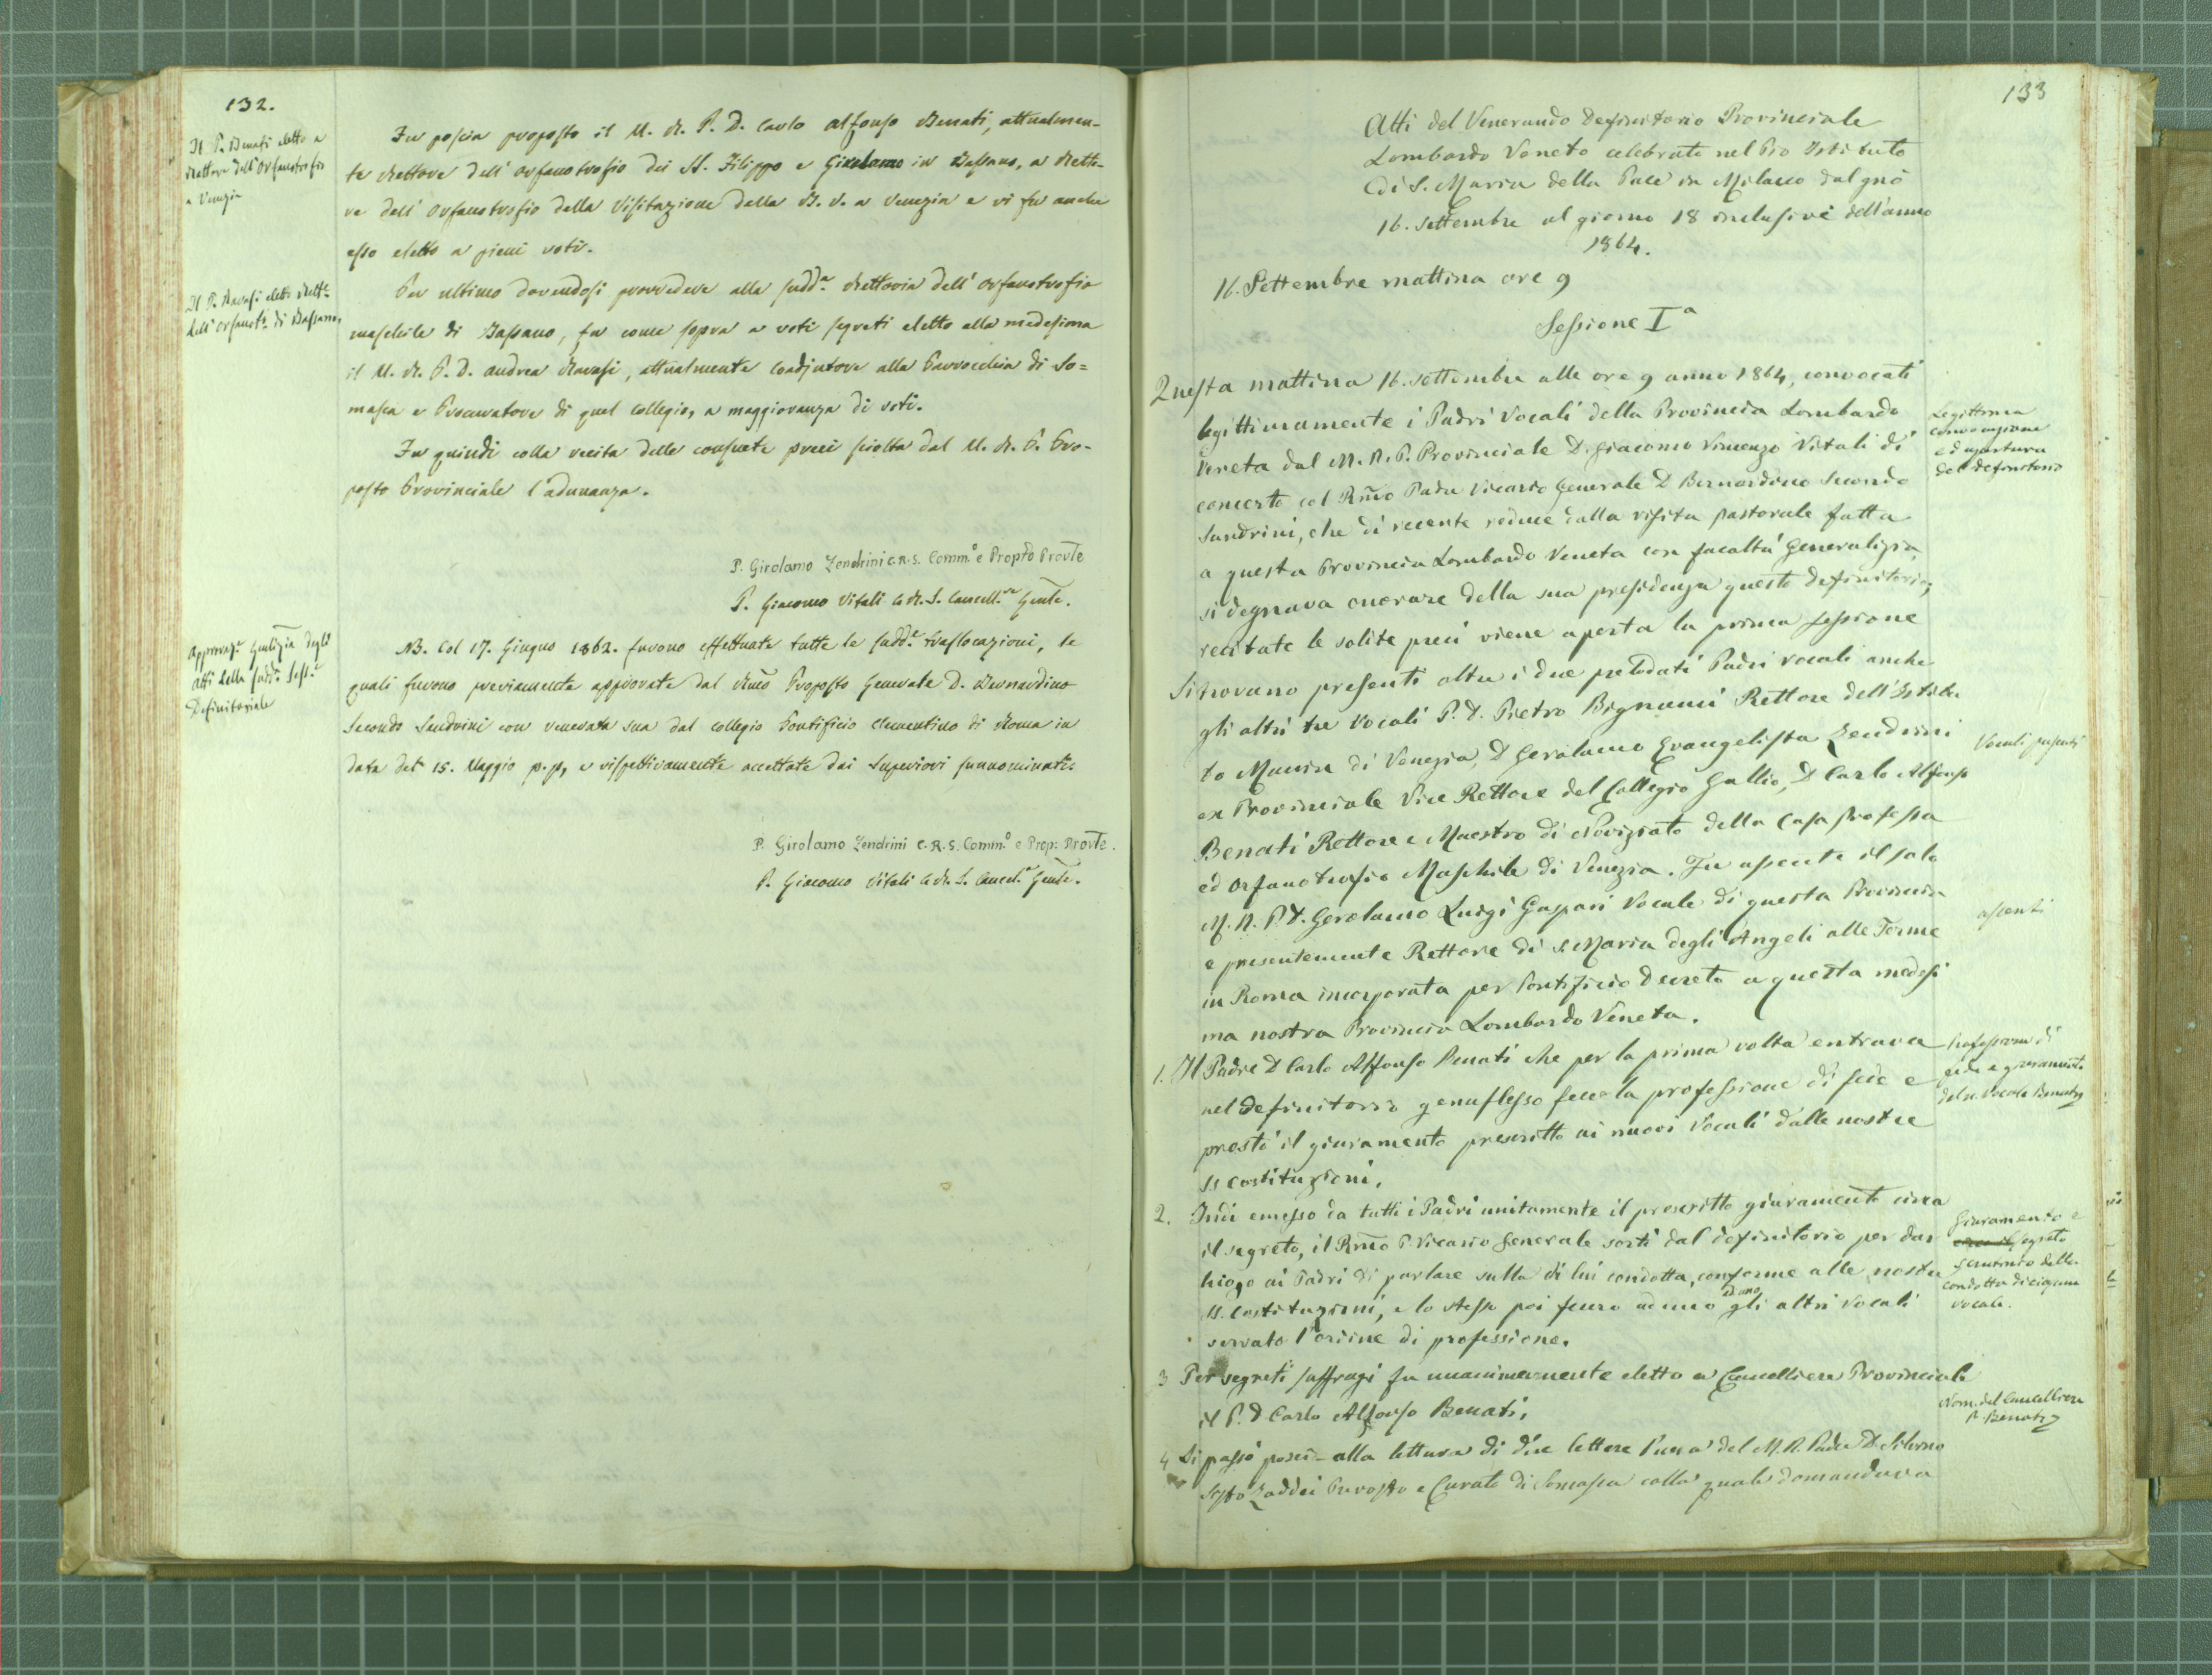 132.
Il P. Benati eletto a
Rettore dell'Orfanotrofio
a Venezia
Fu poscia proposto il M. R. P. D. Carlo Alfonso Benati, attualmen-
te Rettore dell'Orfanotrofio dei SS. Filippo e Girolamo in Bassano, a Retto-
re dell'Orfanotrofio della Visitazione della B. V. a Venezia e vi fu anche
esso eletto a pieni voti.
Il P. Ravasi eletto Rett.e
dell'Orfanot.o di Bassano.
Per ultimo dovendosi provvedere alla sudd.a Rettoria dell'Orfanotrofio
maschile di Bassano, fu come sopra a voti segreti eletto alla medesima
il M. R. P. D. Andrea Ravasi, attualmente Coadjutore alla Parrocchia di So=
masca e Procuratore di quel Collegio, a maggioranza di voti.
Fu quindi colla recita delle consuete preci sciolta dal M. R. P. Pro-
posto Provinciale l'adunanza.
P. Girolamo Zendrini C.R.S. Comm.o e Propto Provle
P. Giacomo Vitali C.R.S. Cancell.re Gnle.
Approvaz.e Gnlizia degli
Atti della sudd.a Sess.e
Definitoriale
NB. Col 17. Giugno 1862. furono effettuate tutte le sudd.e traslocazioni, le
quali furono previamente approvate dal Rmo Proposto Generale D. Bernardino
Secondo Sandrini con venerata sua dal Collegio Pontificio Clementino di Roma in
data del 15. Maggio p.p, e rispettivamente accettate dai Superiori sunnominati.
P. Girolamo Zendrini C.R.S. Comm.o e Prop: Provle.
P. Giacomo Vitali C.R.S. Cancel.e Gnle.
133
Atti del Venerando Definitorio Provinciale
Lombardo Veneto celebrato nel Pio Istituto
di S. Maria della Pace in Milano dal gno
16. Settembre al giorno 18 inclusive dell'anno
1864.
16. Settembre mattina ore 9
Sessione I a
Questa mattina 16. Settembre alle ore 9 anno 1864, convocati
legittimamente i Padri Vocali della Provincia Lombardo
Veneta dal M. R. P. Provinciale D. Giacomo Vincenzo Vitali di
concerto col Rmo Padre Vicario Generale D Bernardino Secondo
Sandrini, che di recente reduce dalla visita pastorale fatta
a questa Provincia Lombardo Veneta con facoltà Generalizia
si degnava onorare della sua presidenza questo definitorio,
recitate le solite preci viene aperta la prima sessione
Legittima
convocazione
ed apertura
del definitorio
Si trovano presenti oltre i due prelodati Padri vocali anche
gli altri tre Vocali P. D. Pietro Bignami Rettore dell'Istitu
to Manin di Venezia, D Gerolamo Evangelista Zendrini
ex Provinciale Vice Rettore del Collegio Gallio, D Carlo Alfonso
Benati Rettore e Maestro di Noviziato della Casa professa
ed Orfanotrofio Maschile di Venezia. Fu assente il solo
M. R. P. D. Gerolamo Luigi Gaspari Vocale di questa Provincia
e presentemente Rettore di S. Maria degli Angeli alle Terme
in Roma incorporata per Pontificio decreto a questa medesi
ma nostra Provincia Lombardo Veneta.
Vocali presenti
assenti
1. Il Padre D Carlo Alfonso Benati che per la prima volta entrava
nel definitorio genuflesso fece la professione di fede e
prestò il giuramento prescritto ai nuovi Vocali dalle nostre
SS Costituzioni.
Professione di
fede e giuramento
del n. Vocale Benati
2. Indi emesso da tutti i Padri unitamente il prescritto giuramento circa
il segreto, il Rmo P. Vicario Generale sortì dal definitorio per dar
luogo ai Padri di parlare sulla di lui condotta, conforme alle nostre
SS. Costituzioni, e lo stesso poi fecero ad uno ad uno gli altri Vocali
servato l'ordine di professione.
Giuramento e
segreto
scrutinio della
condotta di ciascun
vocale.
3 Per segreti suffragi fu unanimemente eletto a Cancelliere Provinciale
il P. D Carlo Alfonso Benati.
Nom. del Cancelliere
P. Benati
4 Si passò poscia alla lettura di due lettere l'una del M. R. Padre D.
Sisto Zaddei Prevosto e Curato di Somasca colla quale domandava